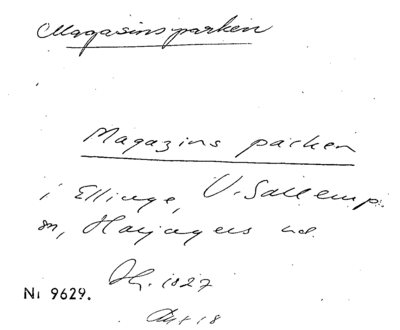 Magasinsparken
Magazins parken
i Ellinge, V. Sallerup
sn, Harjagers hd.
1827
Nr 9629.